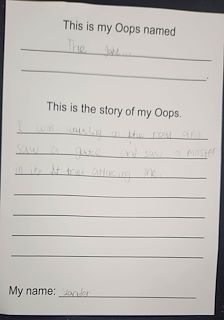 This is my Oops named
The
This is the story of my Oops.
I was walking on the road and
saw a gate and saw a monster
in it. It was attacking me.
My name: Xander